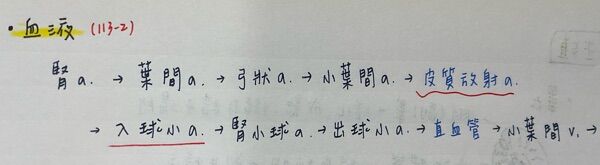 • 血液 (113-2)
腎a. → 葉間a. → 弓狀a. → 小葉間a. → 皮質放射a.
→ 入球小a. → 腎小球a. → 出球小a. → 直血管 → 小葉間v. →